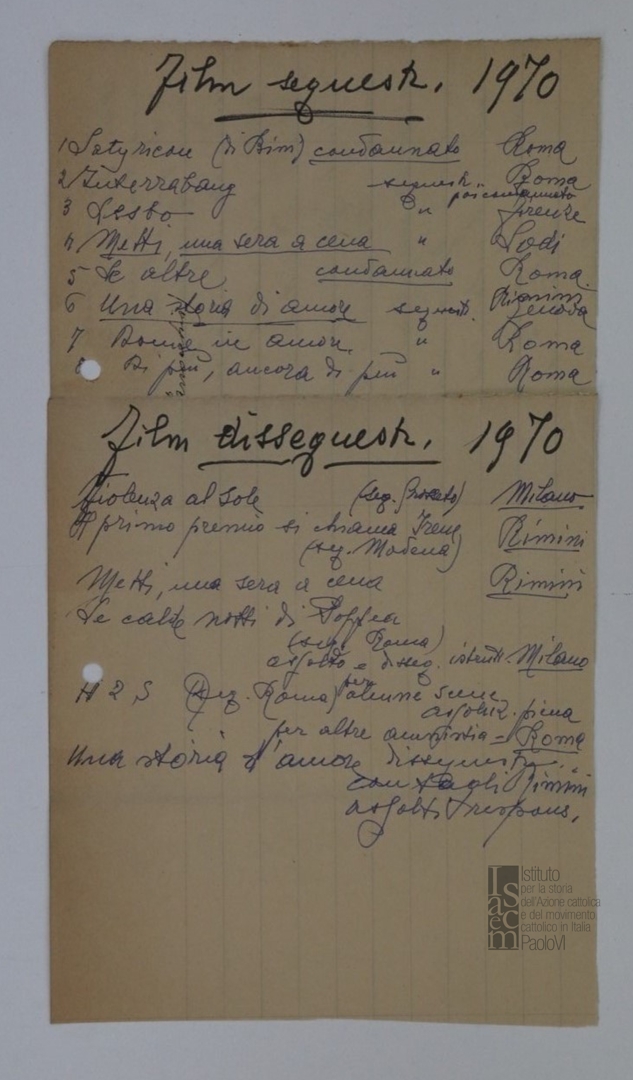 Film sequestr. 1970
1 Satyricon (di Bini) condannato Roma
2 Interrabang sequestr. Roma
poi condannato
3 Lesbo " Firenze
4 Metti, una sera a cena " Lodi
5 Le altre condannato Roma
6 Una storia di amore sequestr. Rimini
Genova
7 Donne in amore " Roma
8 Di più, ancora di più " Roma
Film dissequestr. 1970
Violenza al sole (seq. Grosseto) Milano
Il primo premio si chiama Irene Rimini
(seq. Modena)
Metti, una sera a cena Rimini
Le calde notti di Poppea
(seq. Roma)
assolto e disseq. istrutt. Milano
H2S (seq. Roma) per alcune scene
assoluz. piena
per altre amnistia = Roma
Una storia d'amore dissequestr.
con tagli Rimini
assolti i respons.
Isacem
Istituto
per la storia
dell'Azione cattolica
e del movimento
cattolico in Italia
PaoloVI